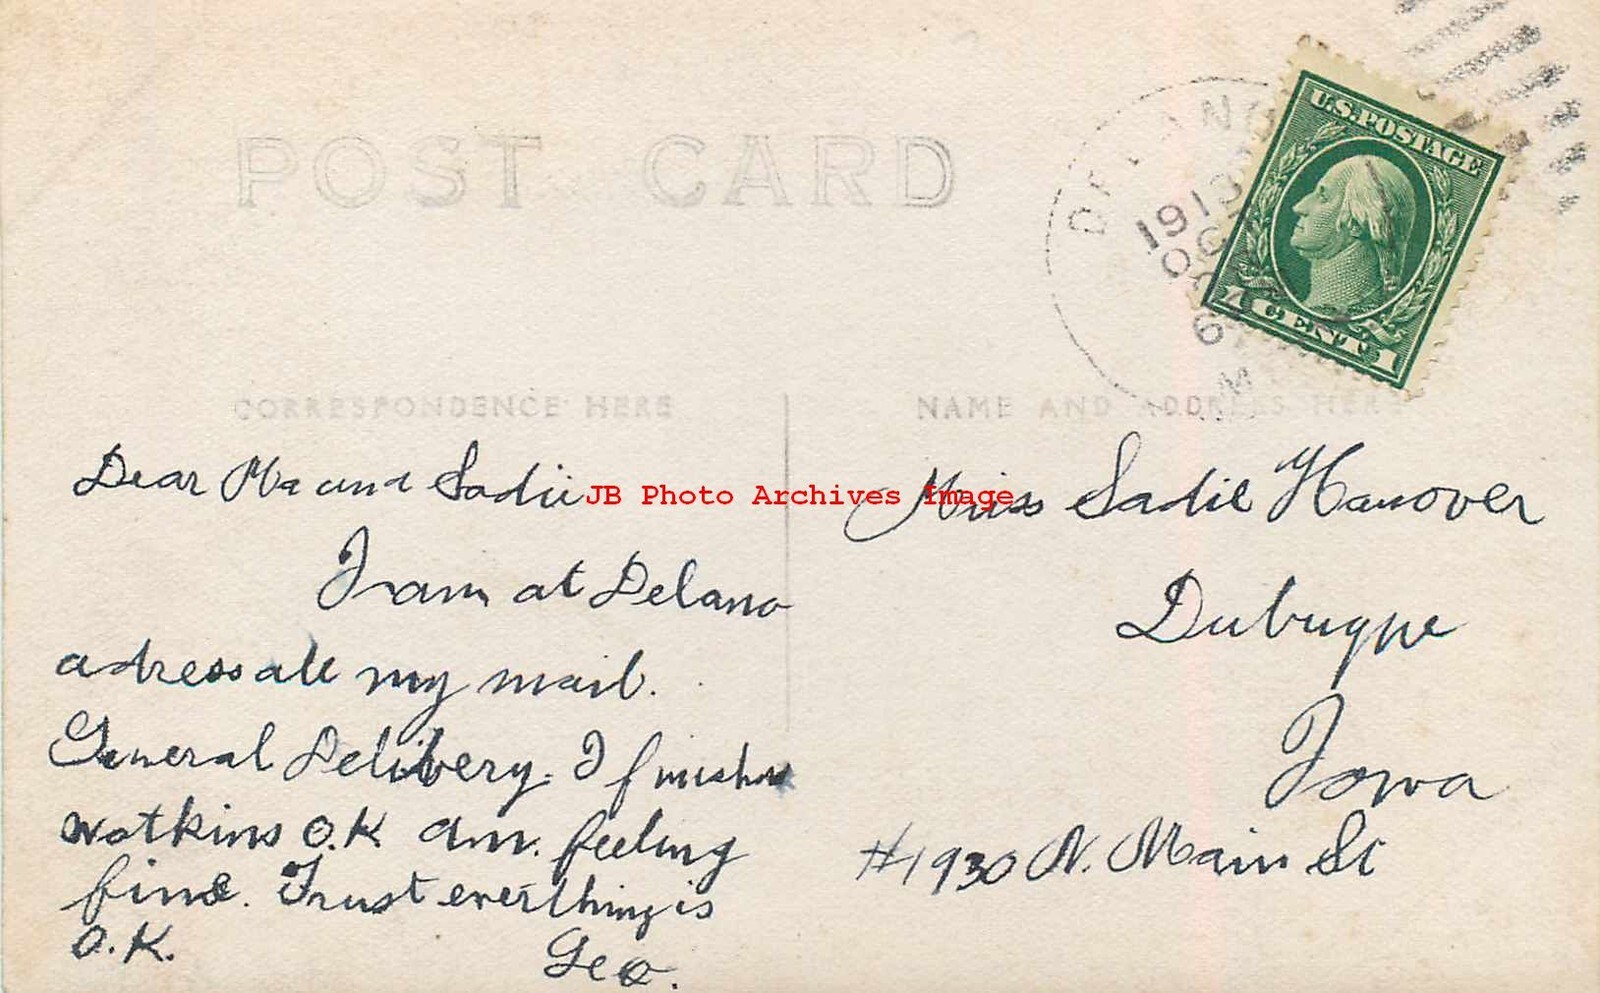 POST CARD
DELANO
1913
OC
6
M
U.S. POSTAGE
1 CENT 1
CORRESPONDENCE HERE
NAME AND ADDRESS HERE
Dear Ma and Sadie
JB Photo Archives Image
I am at Delano
adress all my mail.
General Delivery. I finished
Watkins O.K am. feeling
fine. Trust everthing is
O.K.
Geo.
Miss Sadie Hanover
Dubuque
Iowa
#1930 N. Main St